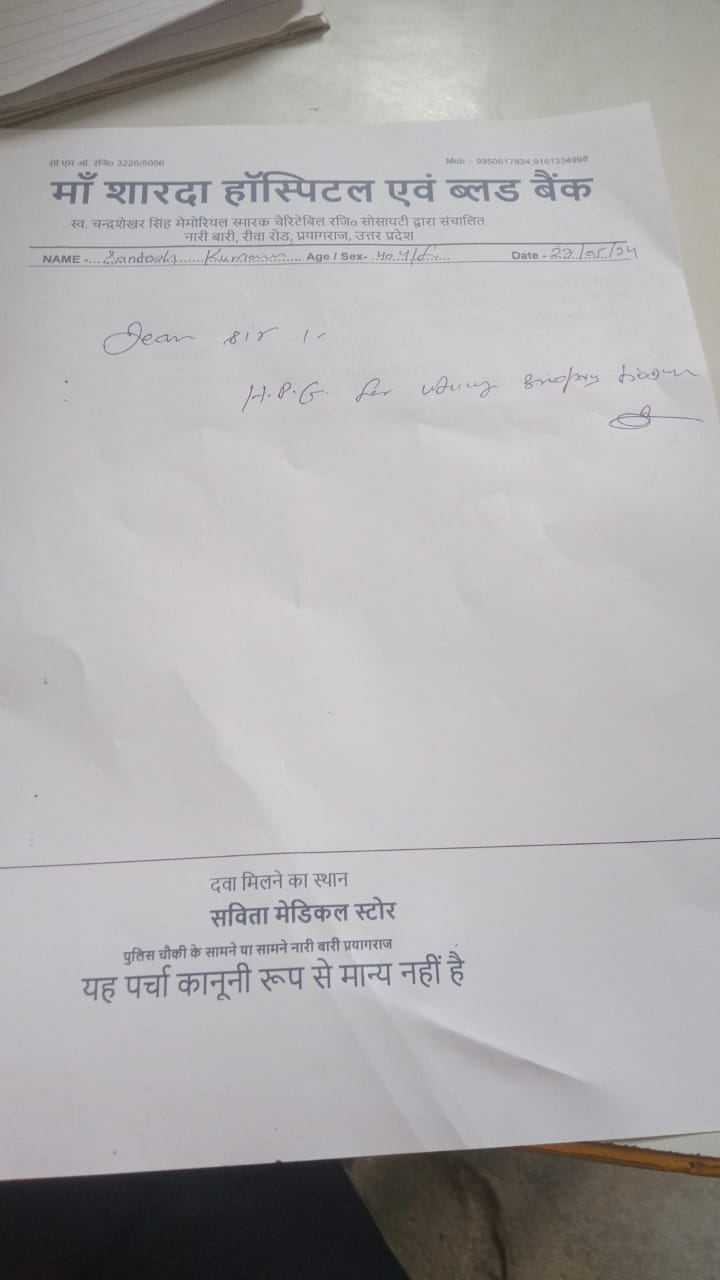 सी.एम.ओ. रजि० 2226/5056
Mob :- 9950617834,9161334998
माँ शारदा हॉस्पिटल एवं ब्लड बैंक
स्व. चन्द्रशेखर सिंह मेमोरियल स्मारक चैरिटेबिल रजि० सोसायटी द्वारा संचालित
नारी बारी, रीवा रोड, प्रयागराज, उत्तर प्रदेश
NAME -... Santosh ...... Kumar .... Age / Sex- Date -
Dear sir
H.P.G. for biopsy
दवा मिलने का स्थान
सविता मेडिकल स्टोर
पुलिस चौकी के सामने या सामने नारी बारी प्रयागराज
यह पर्चा कानूनी रूप से मान्य नहीं है